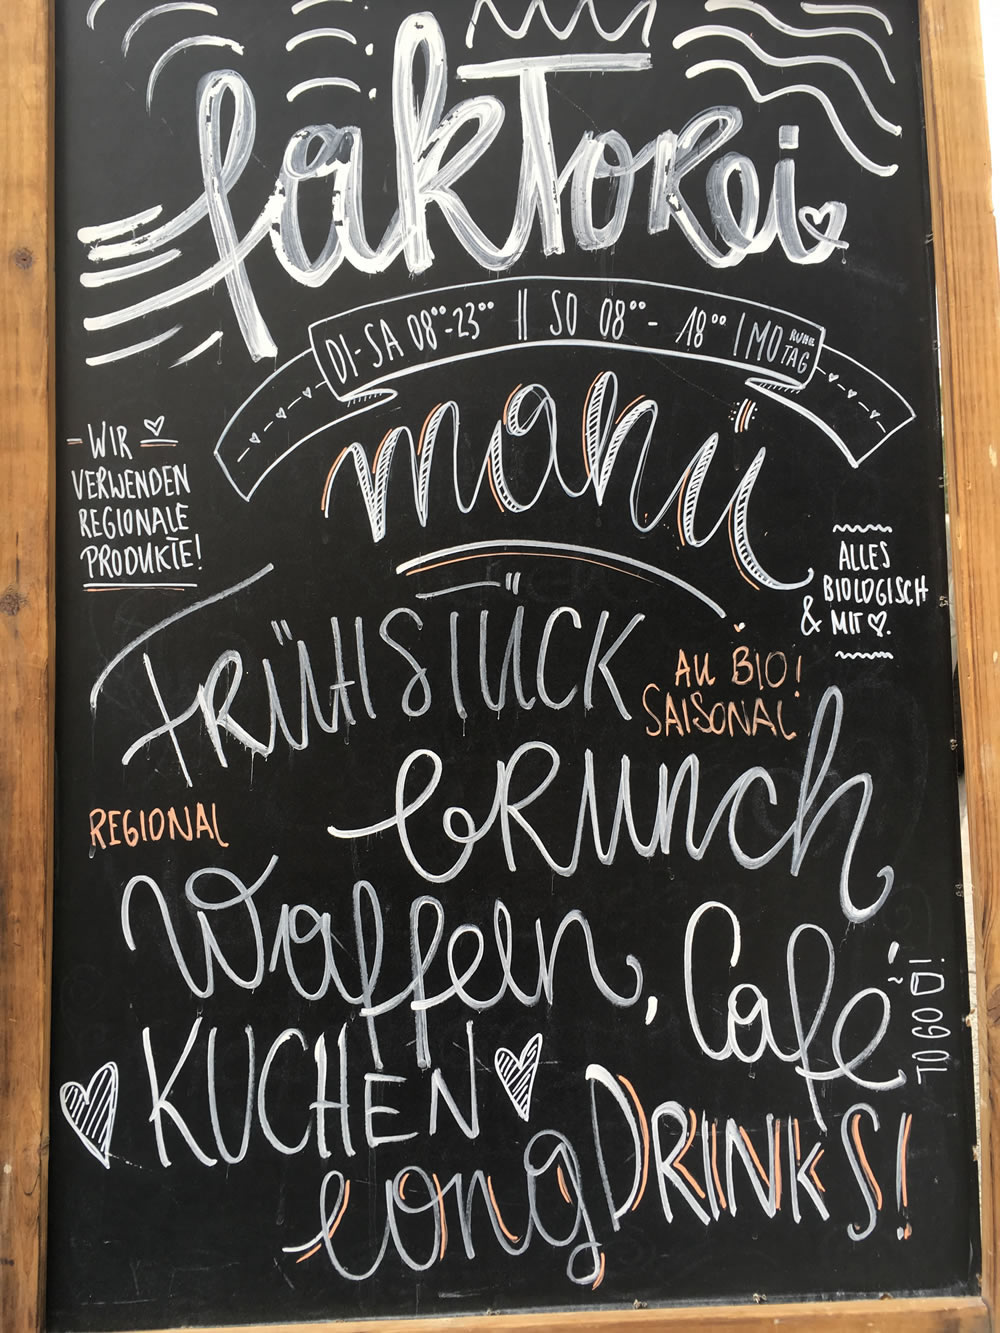 faktorei
DI-SA 08°°-23°° || SO 08°°- 18°° | MO RUHE TAG
menü
- WIR =
VERWENDEN
REGIONALE
PRODUKTE!
ALLES
BIOLOGISCH
& MIT ♡.
FRÜHSTÜCK
BIO!
SAISONAL
brunch
REGIONAL
Waffeln, Café
TO GO!
KUCHEN
long DRINKS!